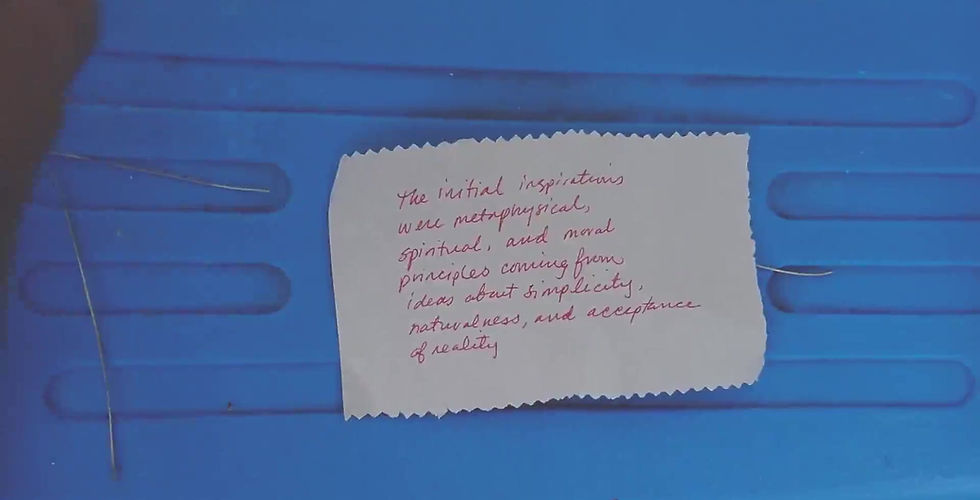 The initial inspirations
were metaphysical,
spiritual, and moral
principles coming from
ideas about simplicity,
naturalness, and acceptance
of reality